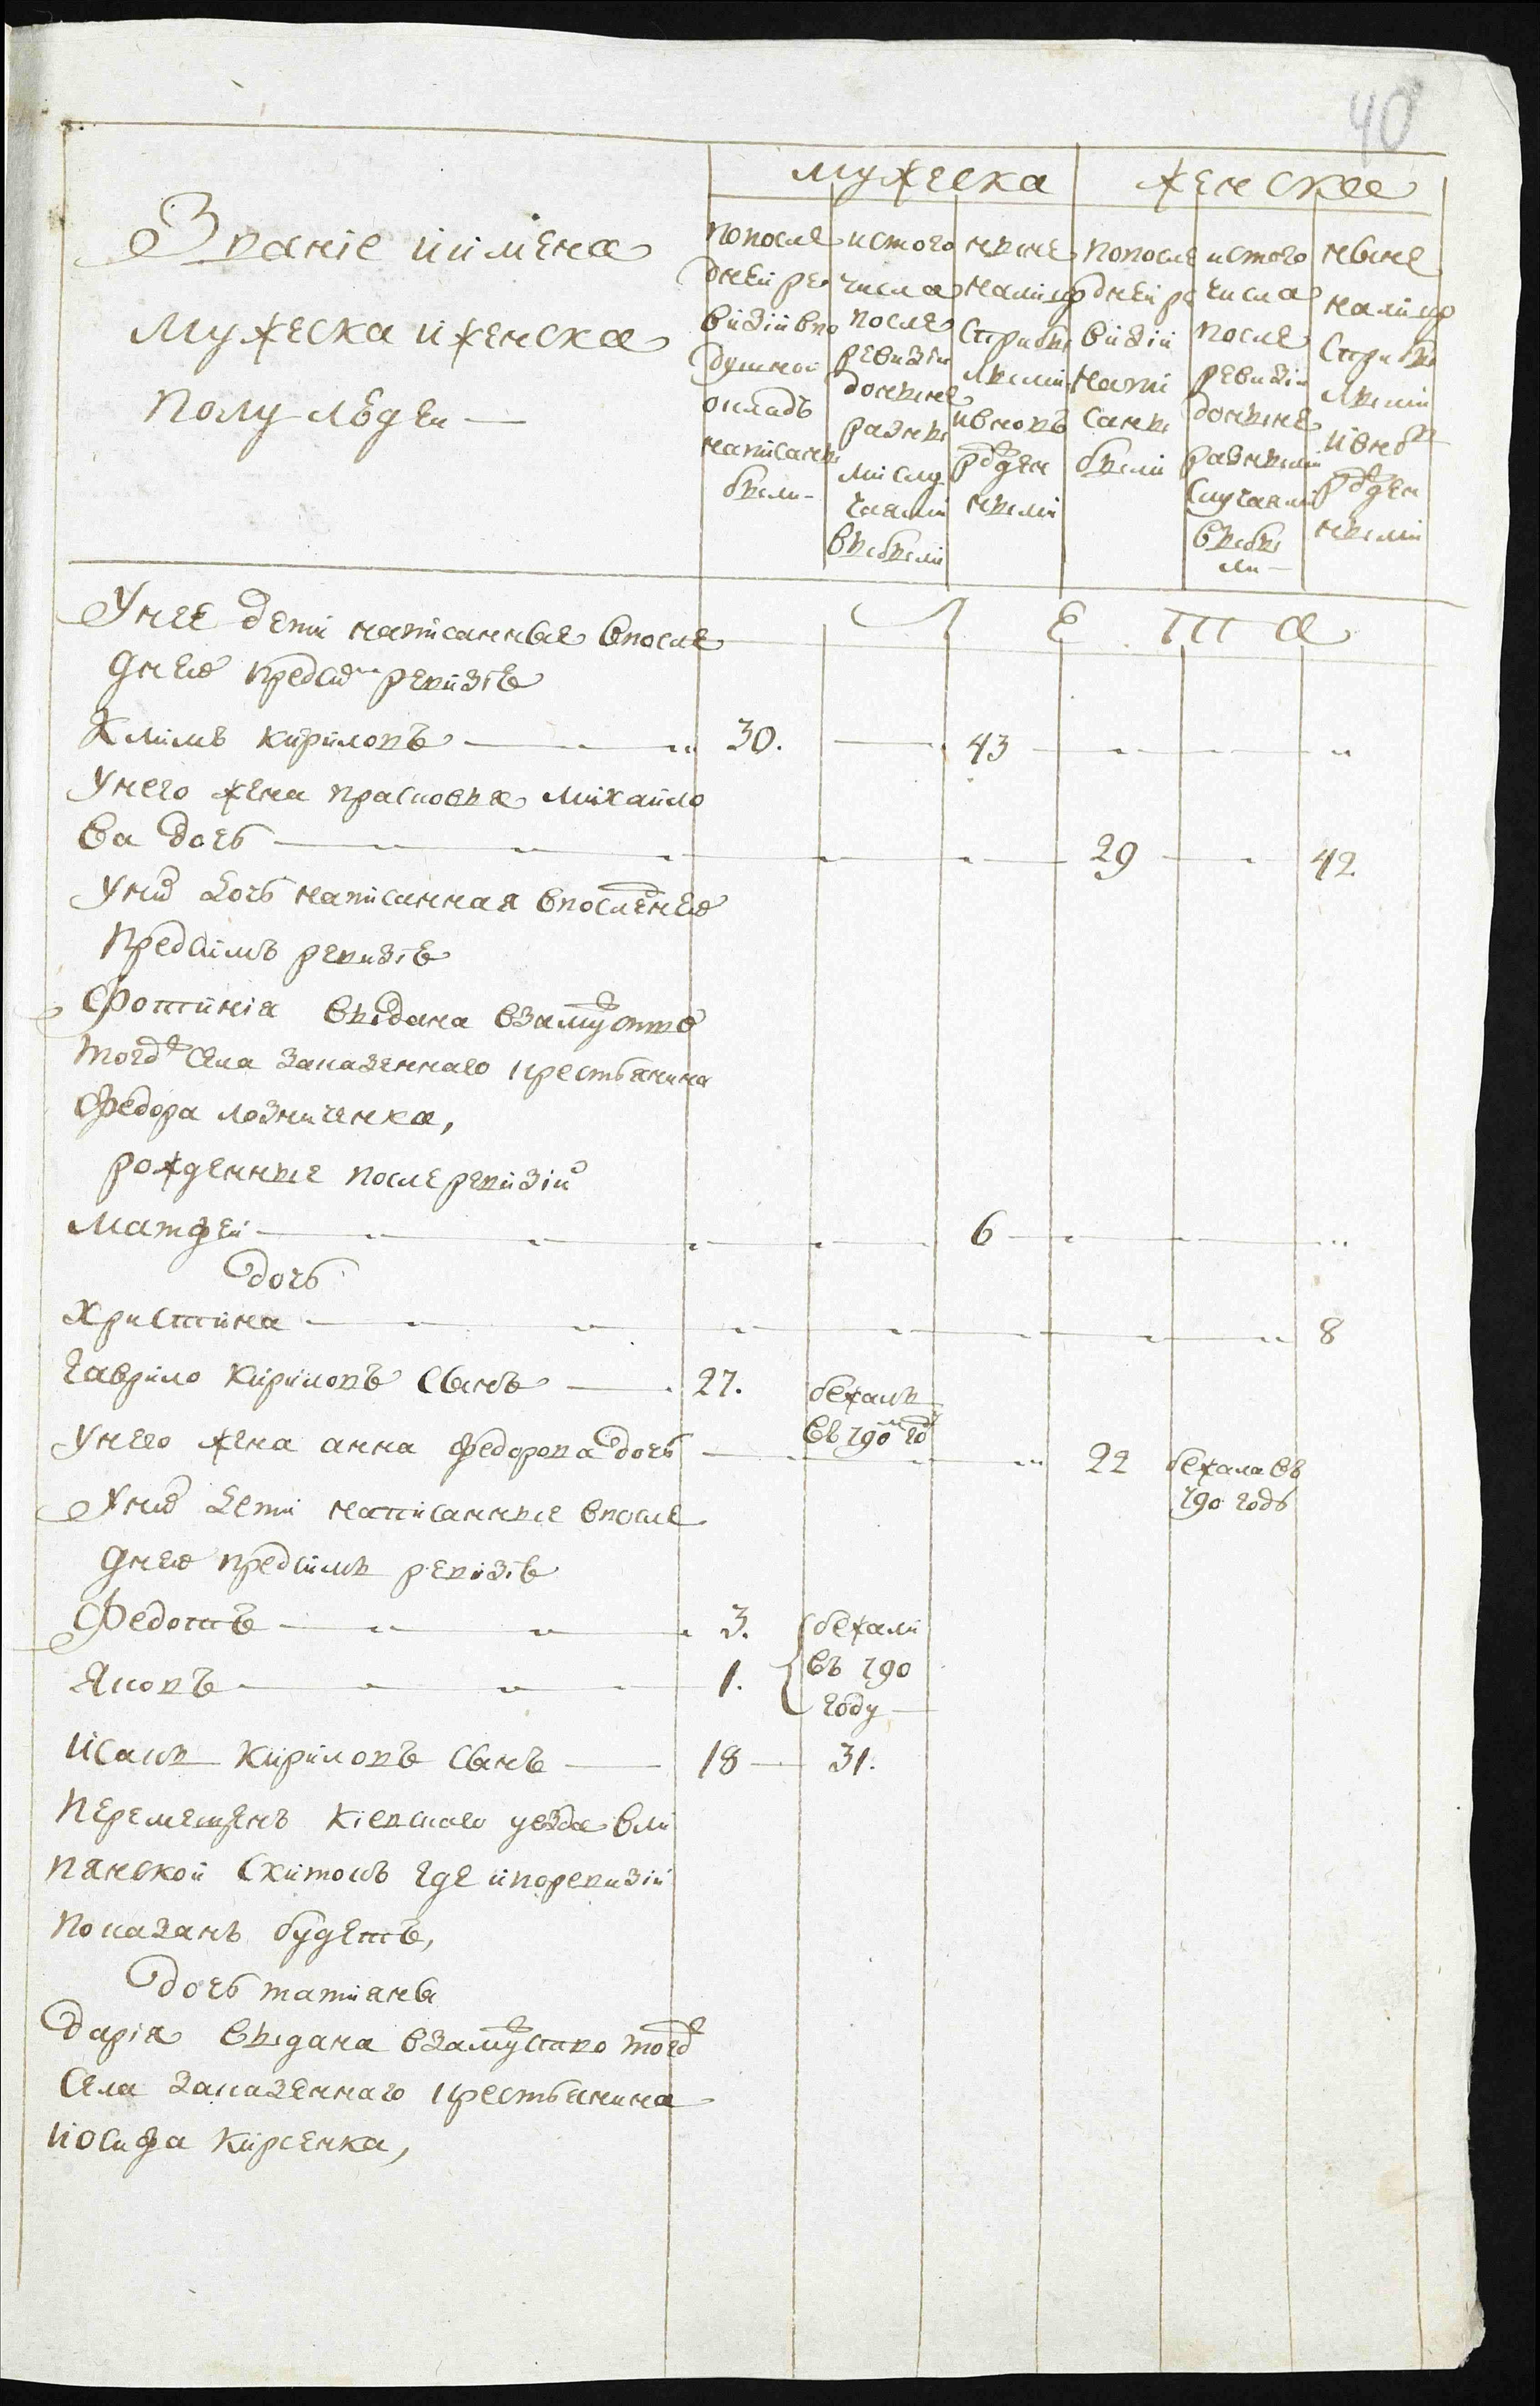 40
мужеска
женска
Званіе иимена
мужеска иженска
полу людеи —
попосле
дней ре
визіи впо
душной
окладъ
написаны
были —
истого
числа
после
ревизіи
доныне
разны
ми слу
чаями
выбыли
ныне
налицо
сприбы
лыми
ивновь
рожден
ными
попосле
дней ре
визіи
напи
саны
были
истого
числа
после
ревизіи
доныне
разными
случаями
выбы
ли —
ныне
налицо
сприбы
лыми
ивновь
рожден
ными
Л Е Т А
Унее дети написанные впосле
днею предсим ревизію
Климъ Кириловъ — 30. — 43
Унего жена прасковья михайло
ва дочь — 29 — 42
Уних дочь написанная впоследнею
предсимъ ревизію
Фотинія выдана взамужство
тогож села заказеннаго крестьянина
Федора лозниченка,
рожденные после ревизіи
Матфеи — 6
дочь
Христина — 8
Гаврило Кириловъ сынъ — 27. бежалъ
въ 790м год
Унего жена анна федорова дочь — 22 бежала въ
790 годъ
Уних дети написанные впосле
днею предсимъ ревизію
Федотъ — 3. бежали
въ 790
году —
Яковъ — 1.
Исакъ Кириловъ сынъ — 18 — 31.
перемещенъ кіевскаго уезда вли
пянской скитокъ где ипоревизіи
показанъ будетъ,
дочь татияны
Дарія выдана взамужство тогож
села заказеннаго крестьянина
иосифа Кирсенка,